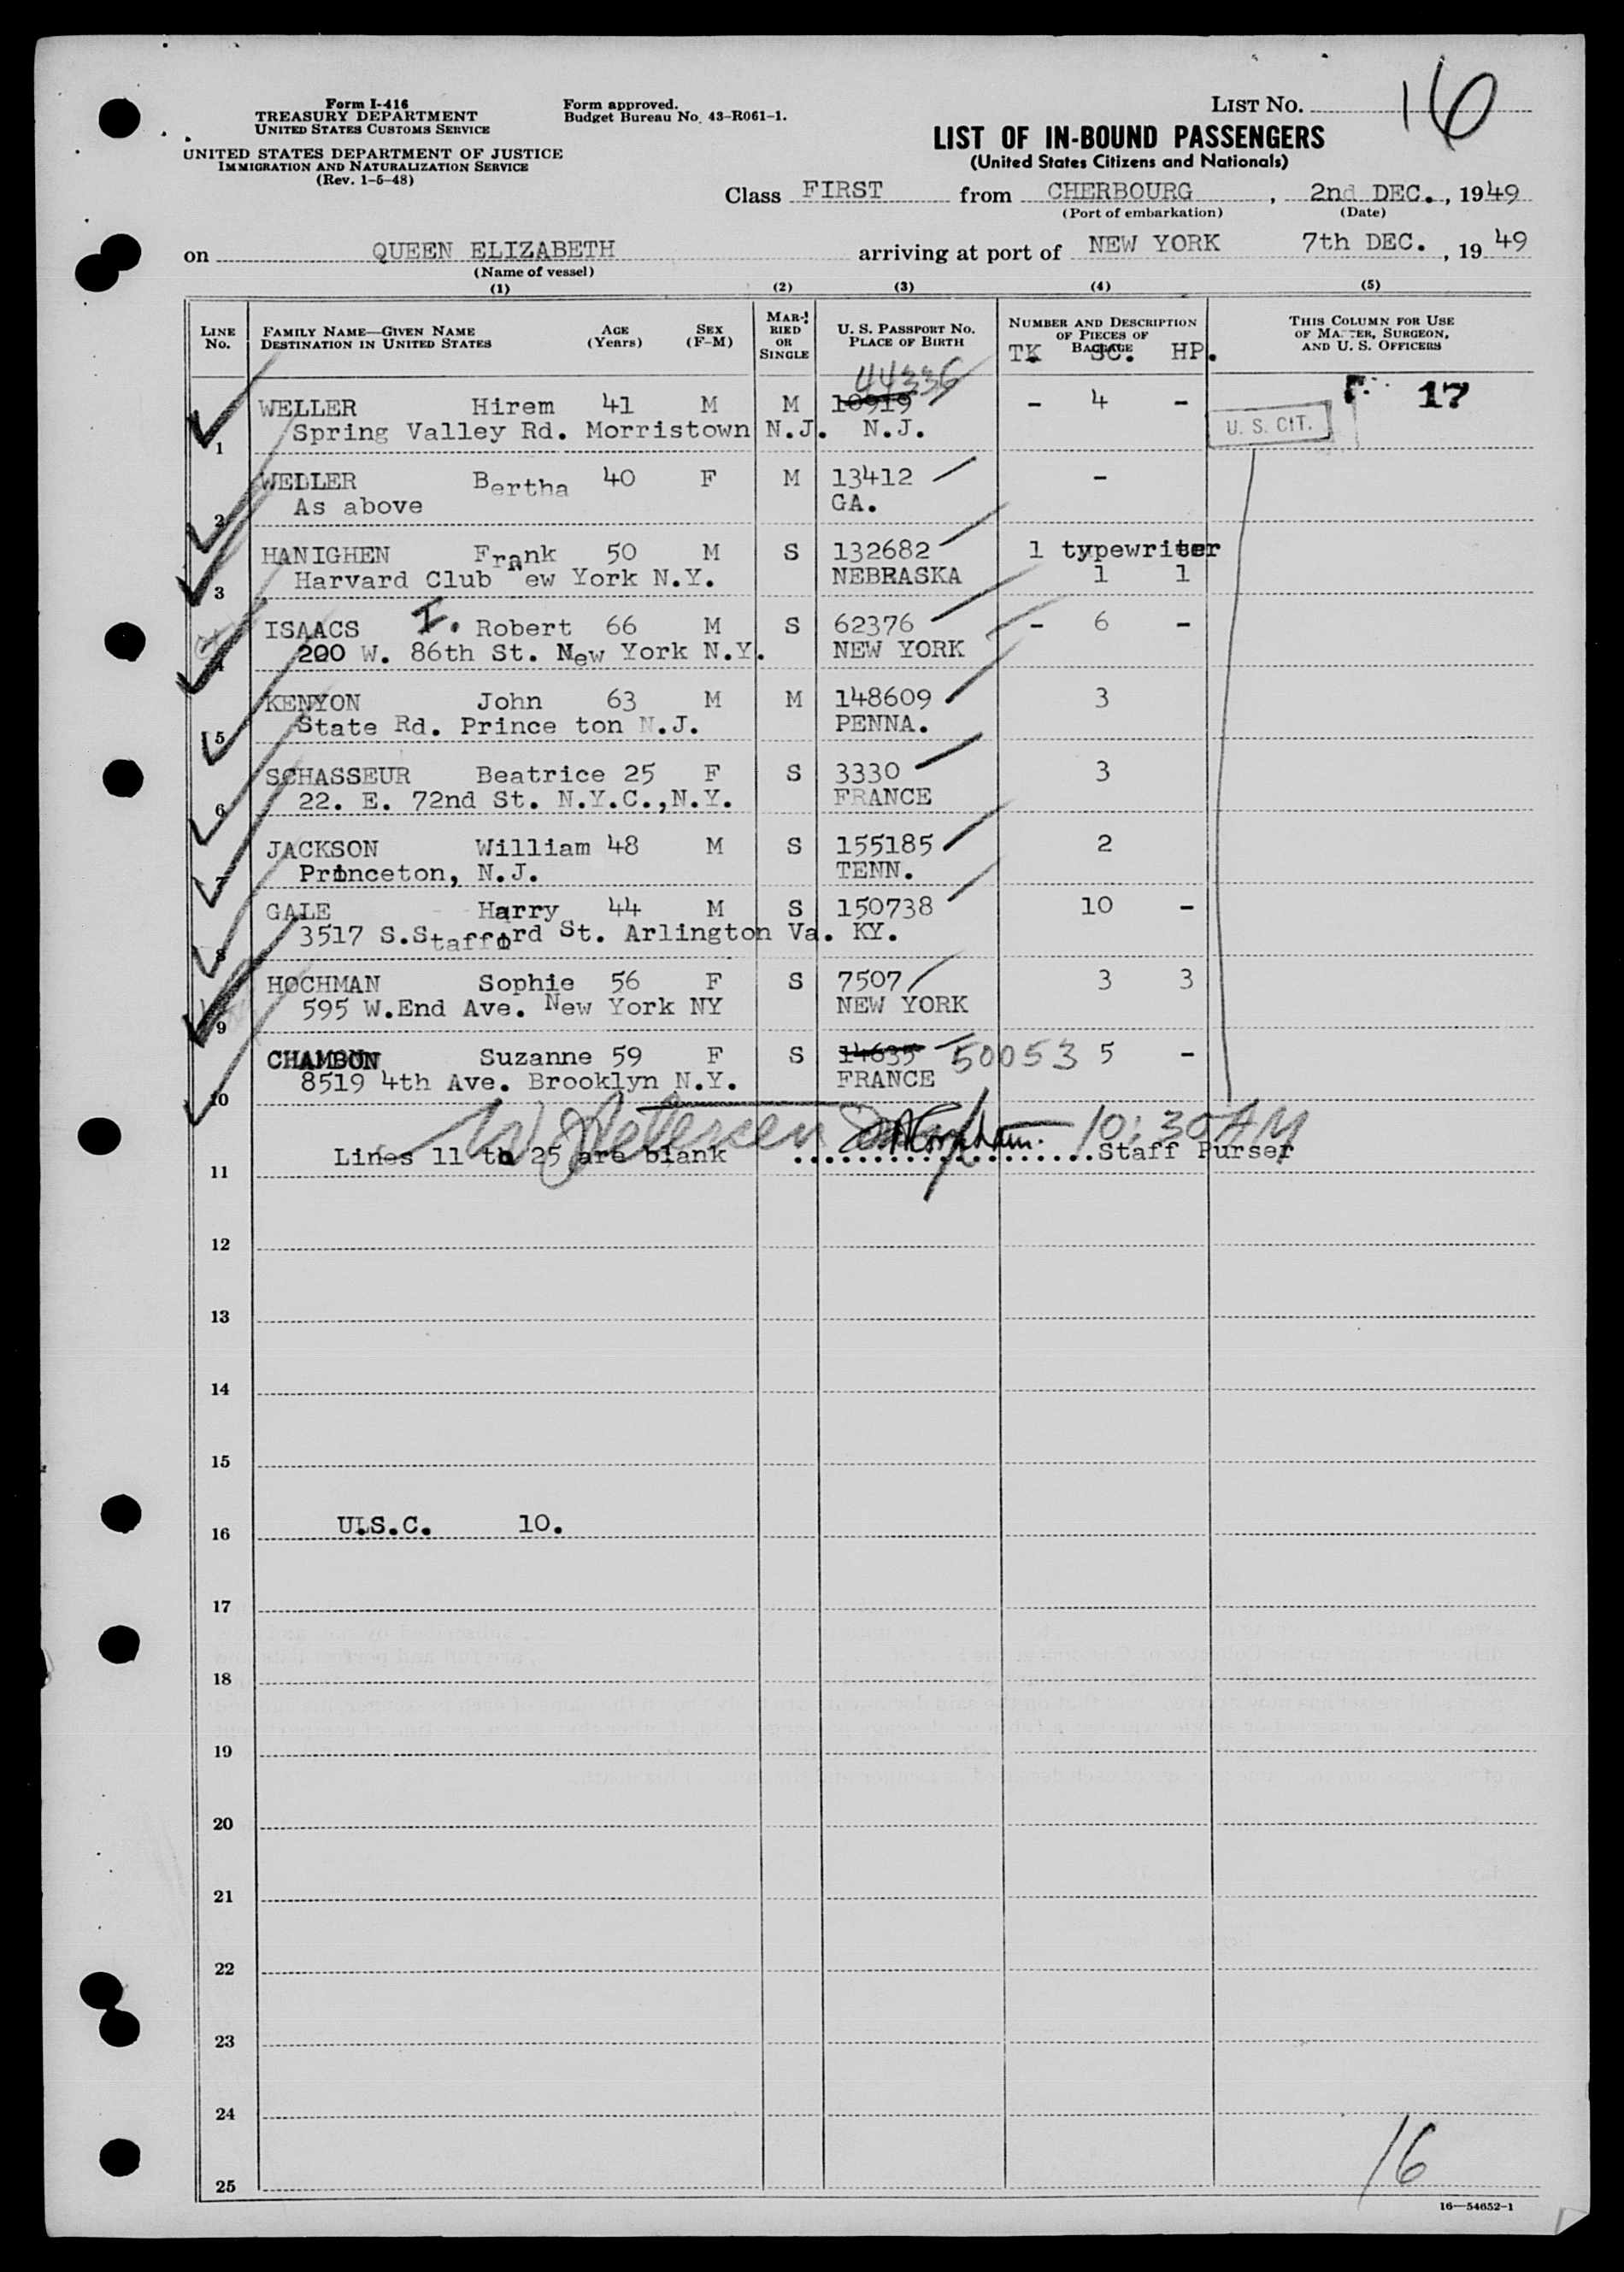 Form I-416
TREASURY DEPARTMENT
UNITED STATES CUSTOMS SERVICE
UNITED STATES DEPARTMENT OF JUSTICE
IMMIGRATION AND NATURALIZATION SERVICE
(Rev. 1-5-48)
Form approved.
Budget Bureau No. 43-R061-1.
LIST NO. 16
LIST OF IN-BOUND PASSENGERS
(United States Citizens and Nationals)
Class FIRST from CHERBOURG, 2nd DEC., 1949
(Port of embarkation) (Date)
on QUEEN ELIZABETH arriving at port of NEW YORK 7th DEC., 19 49
(Name of vessel)
(1) (2) (3) (4) (5)
LINE NO. FAMILY NAME—GIVEN NAME DESTINATION IN UNITED STATES AGE (Years) SEX (F-M) MARRIED OR SINGLE U. S. PASSPORT NO. PLACE OF BIRTH NUMBER AND DESCRIPTION OF PIECES OF BAGGAGE THIS COLUMN FOR USE OF MASTER, SURGEON, AND U. S. OFFICERS
TK. SC. HP.
44336
1 WELLER Hirem 41 M M 10919 - 4 - 17
Spring Valley Rd. Morristown N.J. N.J. U. S. CIT.
2 WELLER Bertha 40 F M 13412 -
As above GA.
3 HANIGHEN Frank 50 M S 132682 1 typewriter
Harvard Club New York N.Y. NEBRASKA 1 1
4 ISAACS I. Robert 66 M S 62376 - 6 -
200 W. 86th St. New York N.Y. NEW YORK
5 KENYON John 63 M M 148609 3
State Rd. Prince ton N.J. PENNA.
6 SCHASSEUR Beatrice 25 F S 3330 3
22. E. 72nd St. N.Y.C.,N.Y. FRANCE
7 JACKSON William 48 M S 155185 2
Princeton, N.J. TENN.
8 GALE Harry 44 M S 150738 10 -
3517 S.Stafford St. Arlington Va. KY.
9 HOCHMAN Sophie 56 F S 7507 3 3
595 W.End Ave. New York NY NEW YORK
10 CHAMBON Suzanne 59 F S 14635 50053 5 -
8519 4th Ave. Brooklyn N.Y. FRANCE
W Petersen 10:30 AM
11 Lines 11 to 25 are blank ....................Staff Purser
12
13
14
15
16 U.S.C. 10.
17
18
19
20
21
22
23
24
25
16
16—54652-1